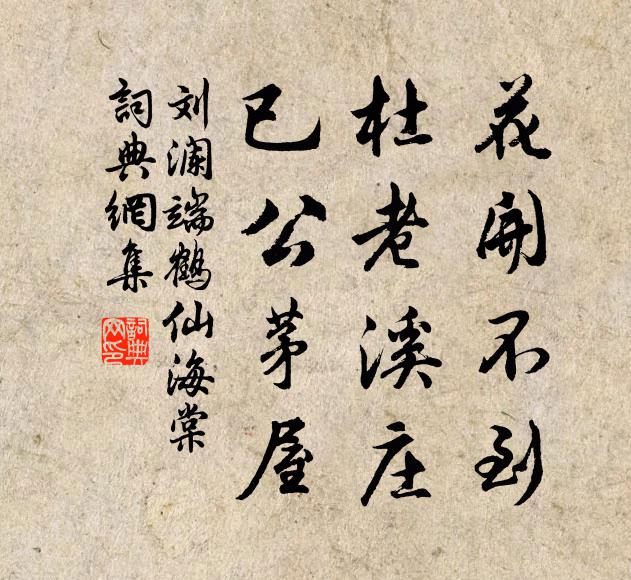 花開不到
杜老溪庄
已公茅屋
刘澜端鹤仙海棠
詞典網集
詞典網印